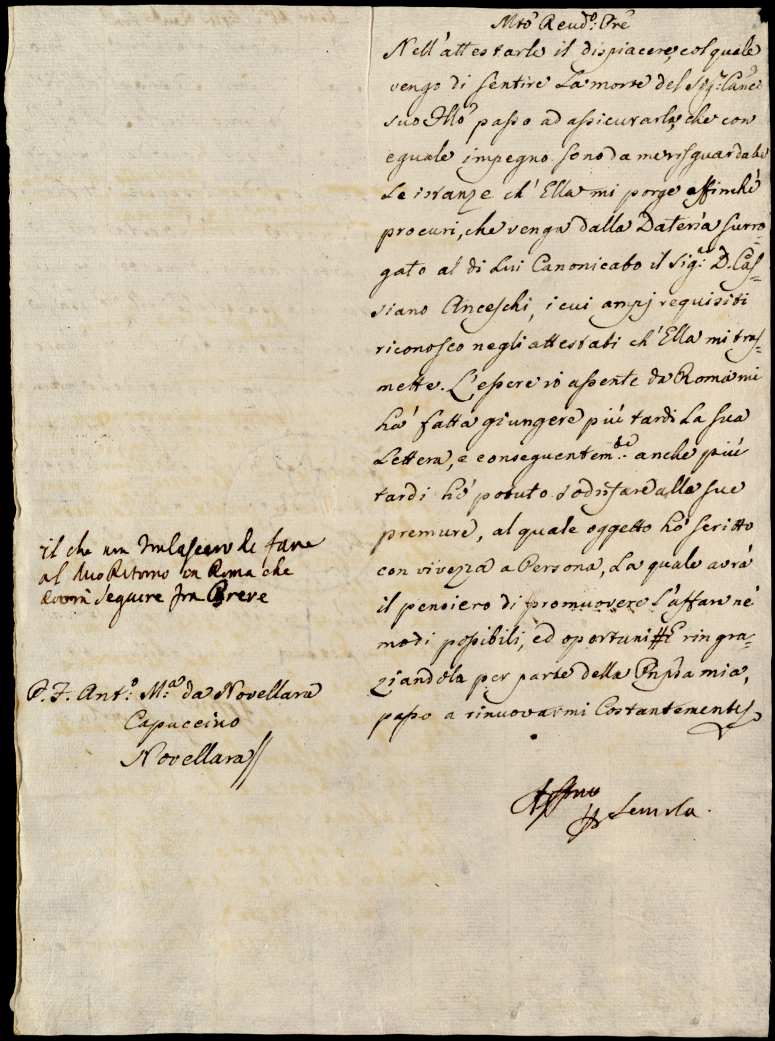 Mto Reudo: Pre
Nell'attestarle il dispiacere, col quale
vengo di sentire la morte del Sigr: Canco
suo passo ad assicurarla, che con
eguale impegno sono da me risguardate
Le istanze ch'Ella mi porge affinché
procuri, che venga dalla Dateria surro-
gato al di Lui Canonicato il Sigr: D. Cas-
siano Anceschi, i cui ampj requisiti
riconosco negli attestati ch'Ella mi tras-
mette. L'essere io assente da Roma mi
há fatta giungere piú tardi La sua
Lettera, e conseguentemte: anche piú
tardi hó potuto sodisfare alle sue
premure, al quale oggetto hó scritto
con vivezza a Persona, La quale avrá
il pensiero di promuovere l'affare né
modi possibili, ed oportuni # E ringra-
ziandola per parte della mia,
passo a rinuovarmi Costantemente
Affmo
# Semola.
il che non tralascero di fare
al mio Ritorno in Roma che
dovrà seguire fra Breve
P. F. Anto: Ma: da Novellara
Capuccino
Novellara//